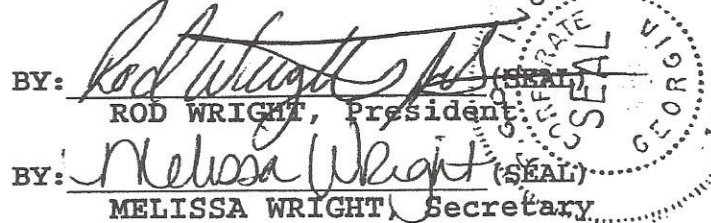 BY: Rod Wright (SEAL)
ROD WRIGHT, President
BY: Melissa Wright (SEAL)
MELISSA WRIGHT, Secretary
CORPORATE
SEAL
GEORGIA